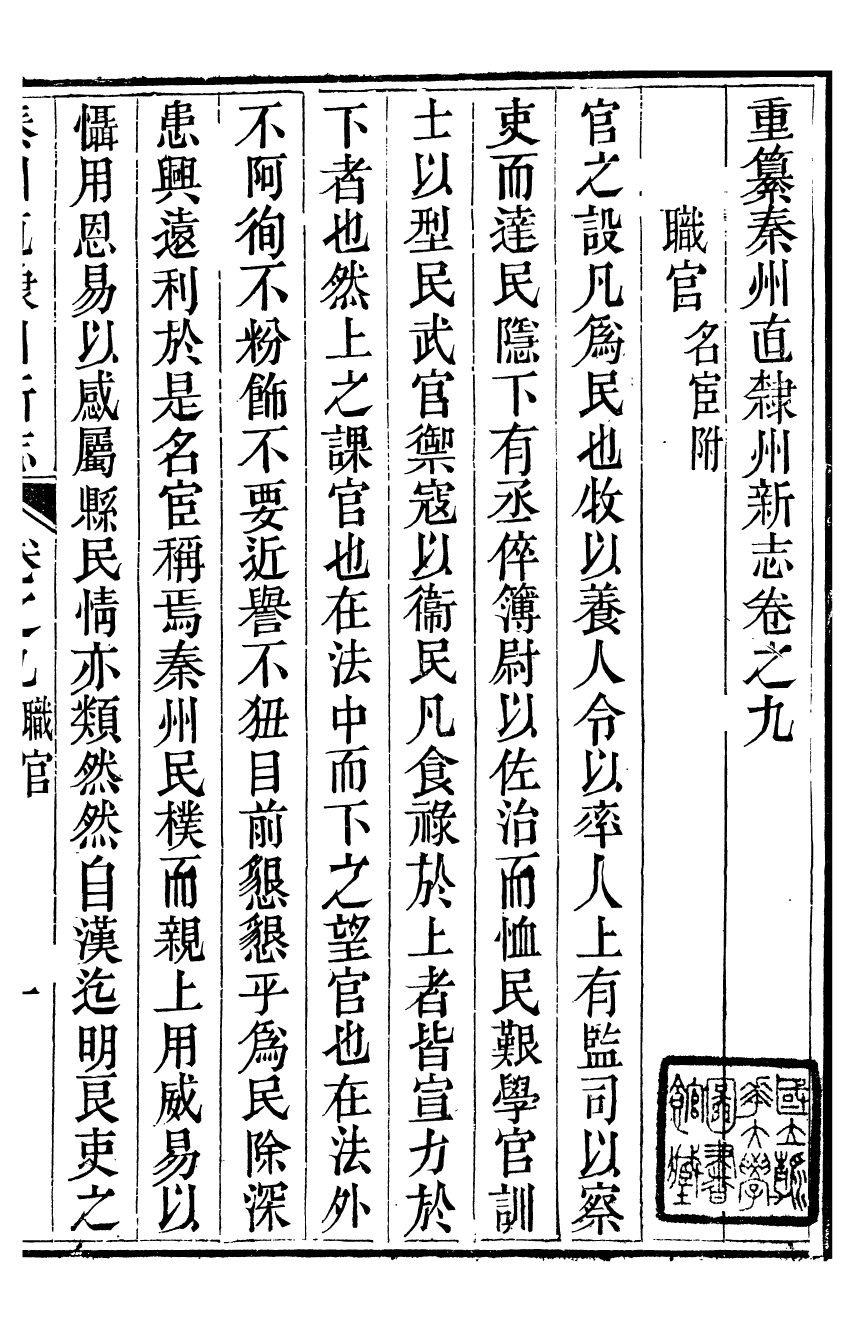 重纂秦州直隸州新志卷之九
職官名宦附
官之設凡爲民也牧以養人令以率人上有監司以察
吏而達民隱下有丞倅簿尉以佐治而恤民艱學官訓
士以型民武官禦寇以衞民凡食祿於上者皆宣力於
下者也然上之課官也在法中而下之望官也在法外
不阿徇不粉飾不要近譽不狃目前懇懇乎爲民除深
患興遠利於是名宦稱焉秦州民樸而親上用威易以
懾用恩易以感屬縣民情亦類然然自漢迄明良吏之
秦州直隸州新志 卷之九職官 一
國立
大學
圖書
館